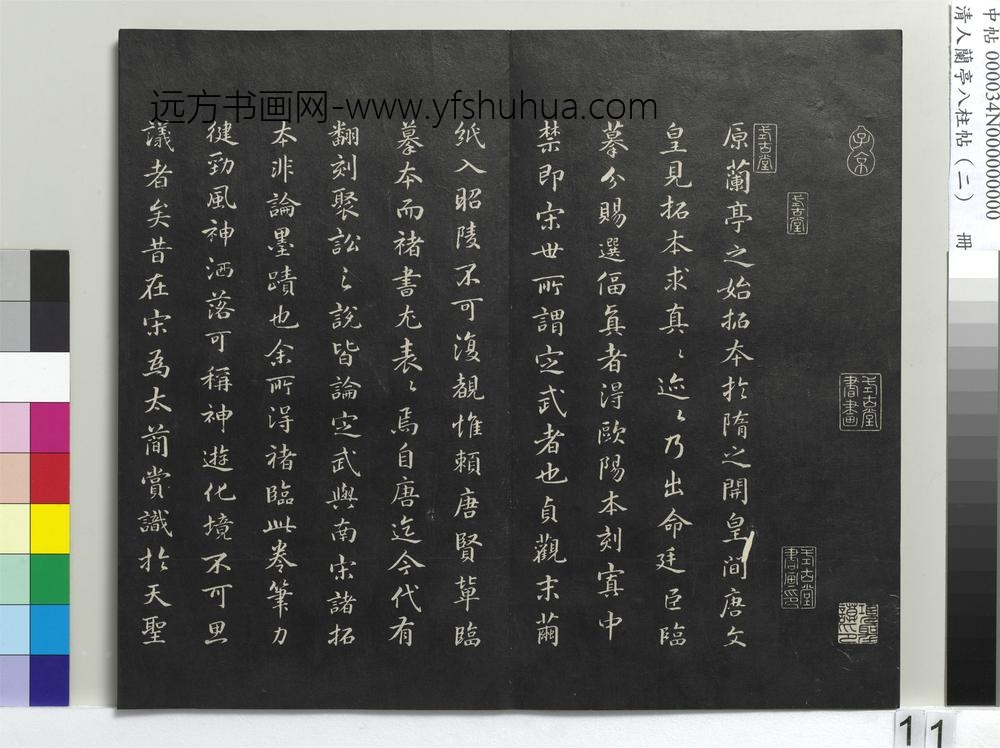 中帖 000034N000000000
清人蘭亭八柱帖（二） 冊
远方书画网-www.yfshuhua.com
子京
式古堂
式古堂
式古堂書畫
式古堂書畫印
原蘭亭之始拓本於隋之開皇間唐文
皇見拓本求真〻迹〻乃出命廷臣臨
摹分賜選逼真者得歐陽本刻寘中
禁即宋世所謂定武者也貞觀末繭
紙入昭陵不可復覩惟賴唐賢輩臨
摹本而褚書尤表〻焉自唐迄今代有
翻刻聚訟之說皆論定武與南宋諸拓
本非論墨蹟也余所得褚臨此卷筆力
健勁風神洒落可稱神遊化境不可思
議者矣昔在宋為太簡賞識於天聖
11